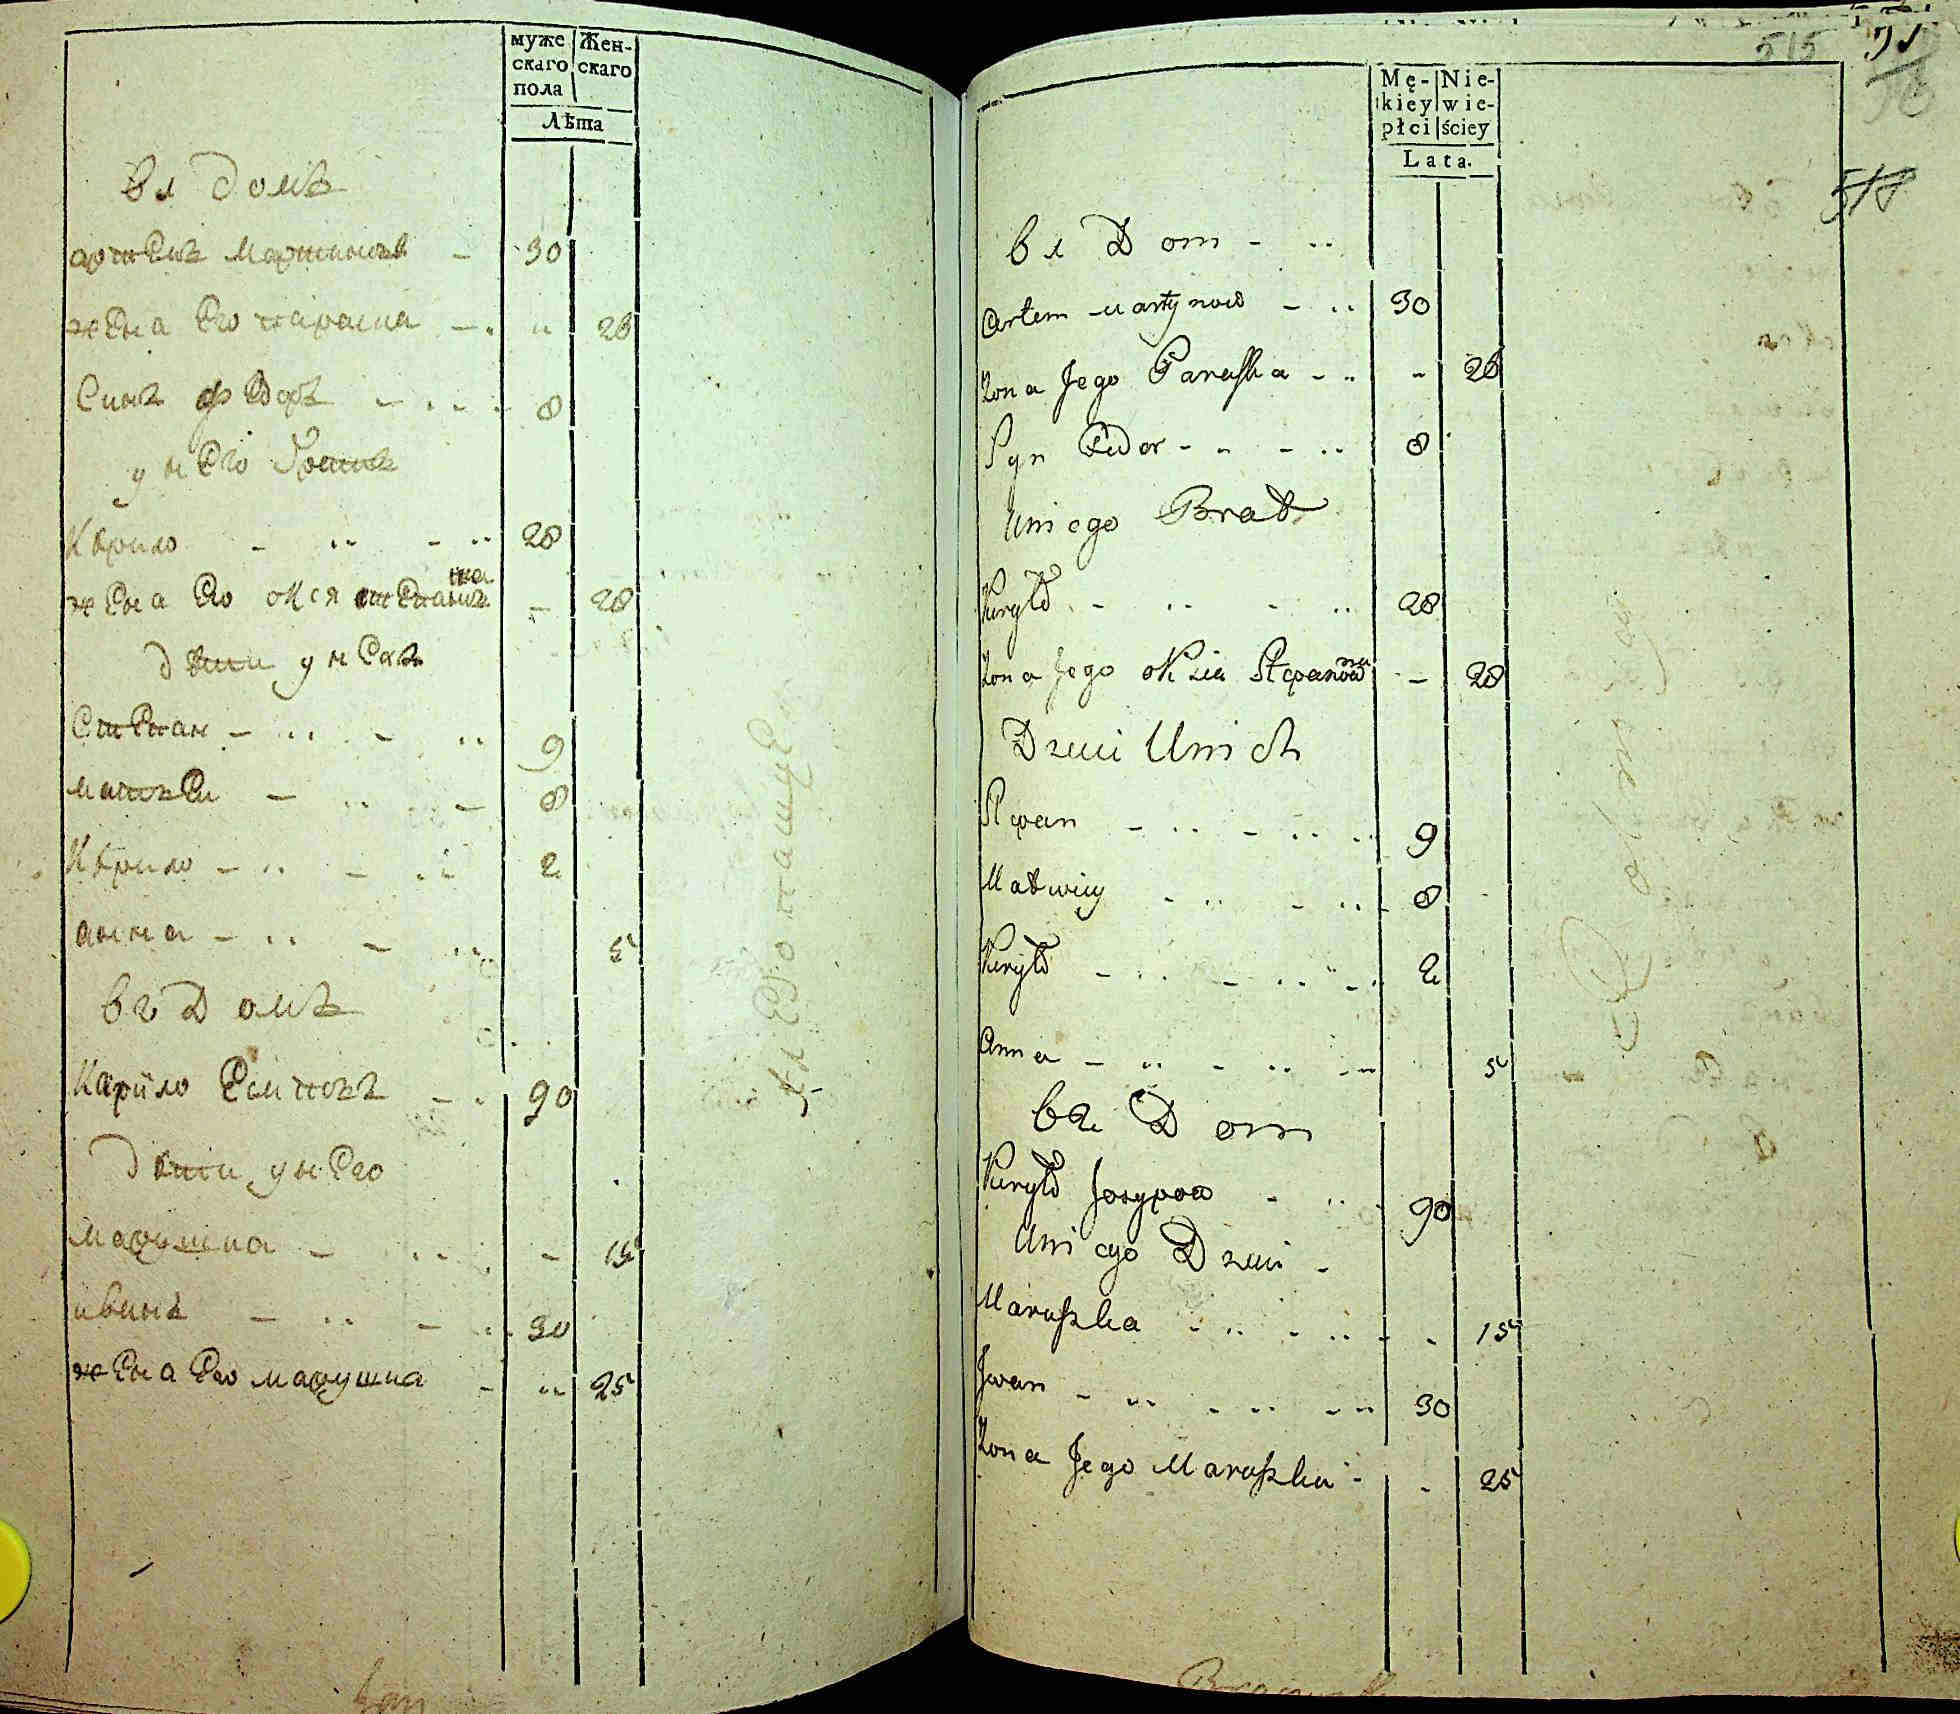 муже Жен-
скаго скаго
пола
Лѣта
в 1 домѣ
артемъ мартиновъ 30
жена его параска 26
Синъ федоръ 8
у него братъ
Кѣрило 28
жена его окся степановна 28
дѣти у нехъ
Степан 9
матвей 8
Кѣрило 2
анна 5
в 2 Домѣ
Карило 90
дѣти у него
марушка 15
иванъ 30
жена его марушка 25
515
Mę- Nie-
kiey wie-
płci ściey
Lata.
в 1 Dom
Artem Martynow 30
Żona Jego Paraska 26
Syn Fedor 8
Uniego Brat
Kiryło 28
Żona Jego Oksia Stepanowna 28
Dzieci Unich
Stepan 9
Matwiey 8
Kiryło 2
Anna 5
в 2 Dom
Kiryło Josypow 90
Uniego Dzieci
Maruszka 15
Jwan 30
Żona Jego Maruszka 25